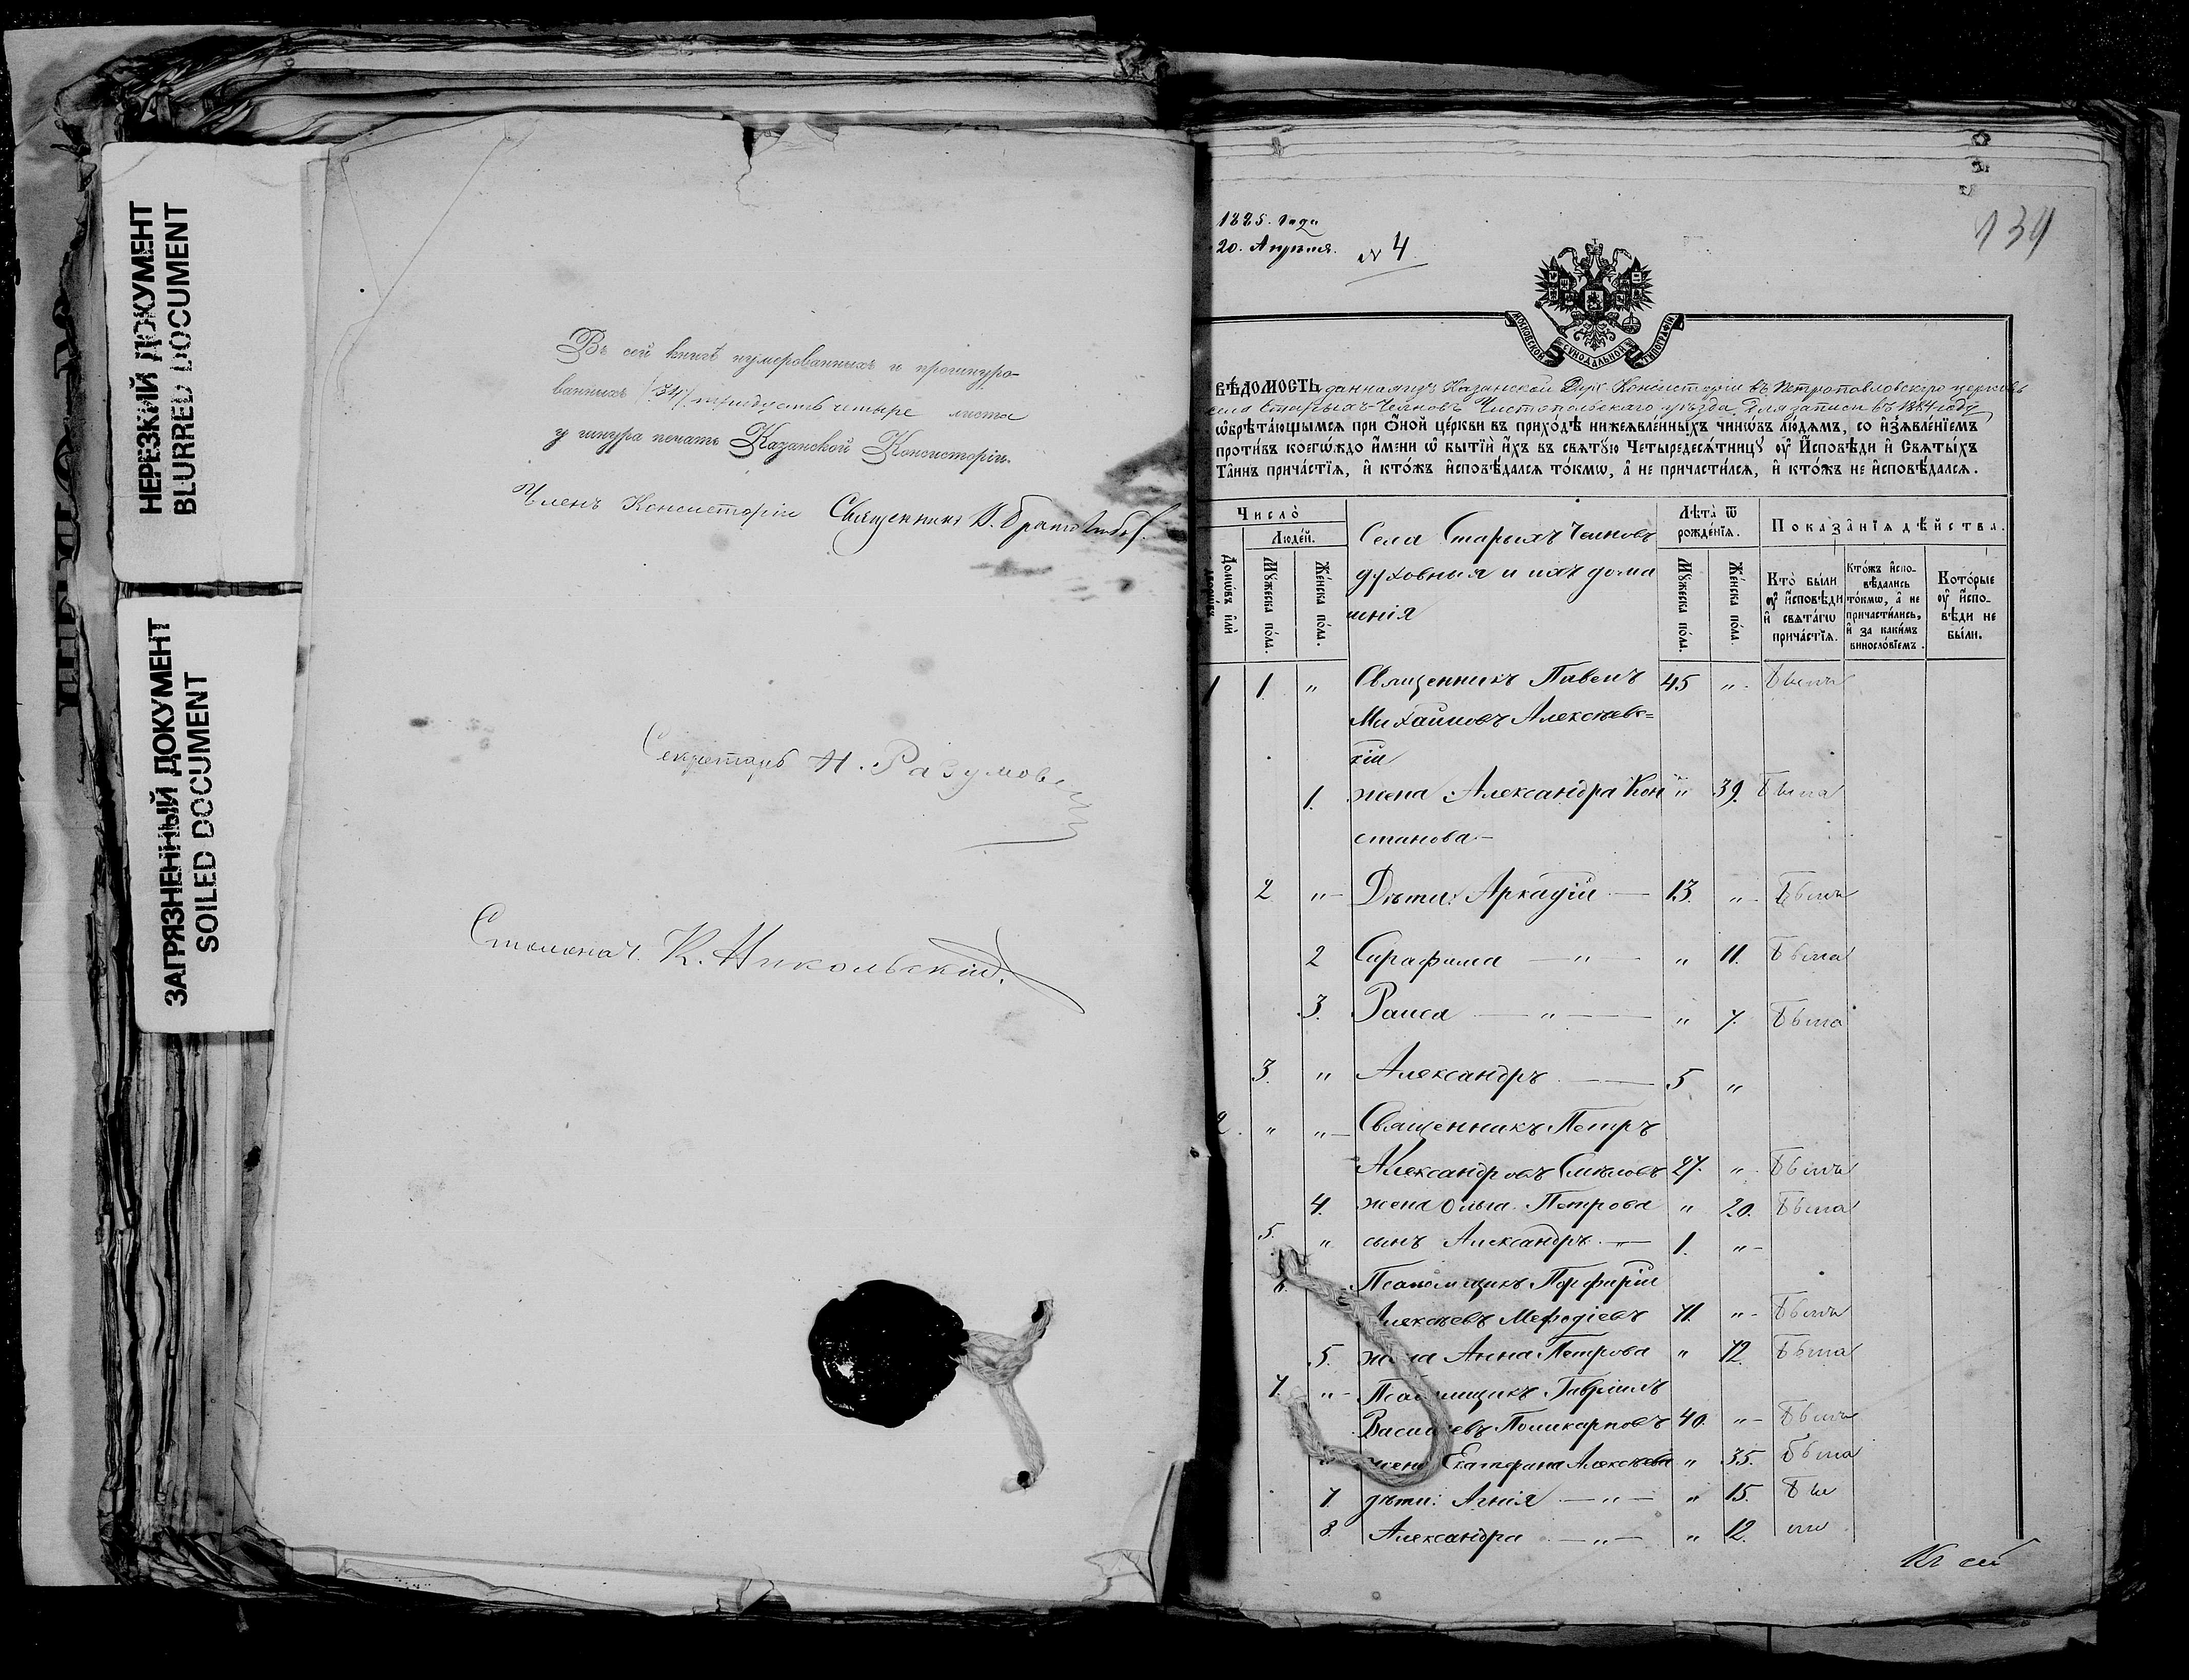 НЕРЕЗКИЙ ДОКУМЕНТ
BLURRED DOCUMENT
ЗАГРЯЗНЕННЫЙ ДОКУМЕНТ
SOILED DOCUMENT
Въ сей книгѣ нумерованныхъ и прошнуро-
ванныхъ /34/ тридцать четыре листа
у шнура печать Казанской Консисторіи.
Членъ Консисторіи Священникъ
Секретарь Н. Разумов
Столонач. К. Никольскій.
1885. года
20. Апрѣля. № 4
134
МОСКОВСКОЙ СѴНОДАЛЬНОЙ ТИПОГРАФІИ
ВѢДОМОСТЬ данная изъ Казанской Дух. Консисторіи въ Петропавловскую церковь
села Старыхъ-Челновъ Чистопольскаго уѣзда, для записи въ 1884 году
ѡ҆брѣта́ющымсѧ при ѻ҆́ной це́ркви въ прихо́дѣ нижеѧвле́нныхъ чинѡ́въ лю́демъ, со и҆з̾ѧвле́нїемъ
проти́въ коегѡ́ждо и҆́мени ѡ҆ бытїѝ и҆́хъ въ свѧтꙋ́ю Четыредесѧ́тницꙋ ᲂу҆ И҆́сповѣди и҆ Свѧты́хъ
Та̑инъ прича́стїѧ, и҆ кто́жъ и҆сповѣ́далсѧ то́кмѡ, а҆ не причасти́лсѧ, и҆ кто́жъ не и҆сповѣ́далсѧ.
Число̀
Люде́й.
Домѡ́въ и҆лѝ
Мꙋ́жеска по́ла.
Же́нска по́ла.
Села Старыхъ Челновъ
духовныя и ихъ дома
шнія
Лѣ́та ѿ рожде́нїѧ.
Мꙋ́жеска по́ла.
Же́нска по́ла.
Показа̑нїѧ дѣ́йства.
Кто̀ бы́ли ᲂу҆ и҆́сповѣди и҆ свѧта́гѡ прича́стїѧ.
Кто́жъ и҆спо-вѣ́дались то́кмѡ, а҆ не причасти́лись, и҆ за каки́мъ винослѡ́вїемъ.
Кото́рые ᲂу҆ и҆́спо-вѣди не бы́ли.
1 1. " Священникъ Павелъ 45 " Былъ
Михайловъ Алексѣев=
кій
1. жена Александра Кон " 39. Была
станова
2 " Дѣти: Аркадій 13. " Былъ
2 Сирафима " " 11. Была
3. Раиса " " 7. Была
3. " Александръ 5 "
2. " " Священникъ Петръ
Александровъ Смѣловъ 27. " Былъ
4. жена Ольга Петрова " 20. Была
5. " сынъ Александръ " 1. "
6. Псаломщикъ Порфирій
Алексѣевъ Мефодіевъ 71. " Былъ
5. жена Анна Петрова " 72. Была
7. " Псаломщикъ Гавріилъ
Васильевъ Поликарповъ 40. " Былъ
жена Екатерина Алексѣева " 35. Была
7 дѣти: Агнія " " 15. Бы
8 Александра " " 12. ли
Къ сей